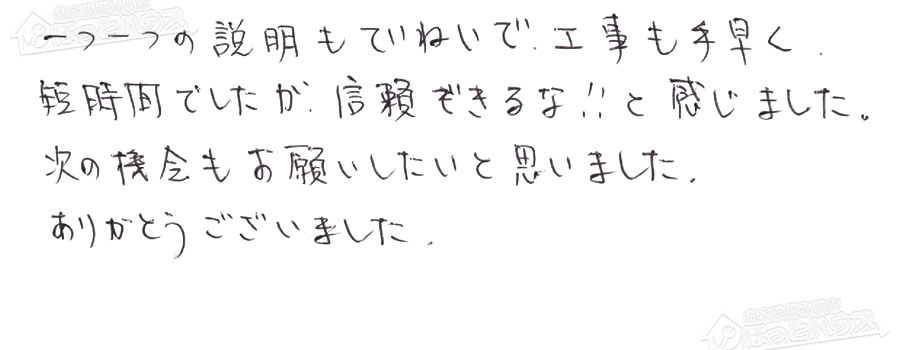 一つ一つの説明もていねいで、工事も手早く、
短時間でしたが、信頼できるな!!と感じました。
次の機会もお願いしたいと思いました。
ありがとうございました。
住宅設備専門店
ほっとハウス
住宅設備専門店
ほっとハウス